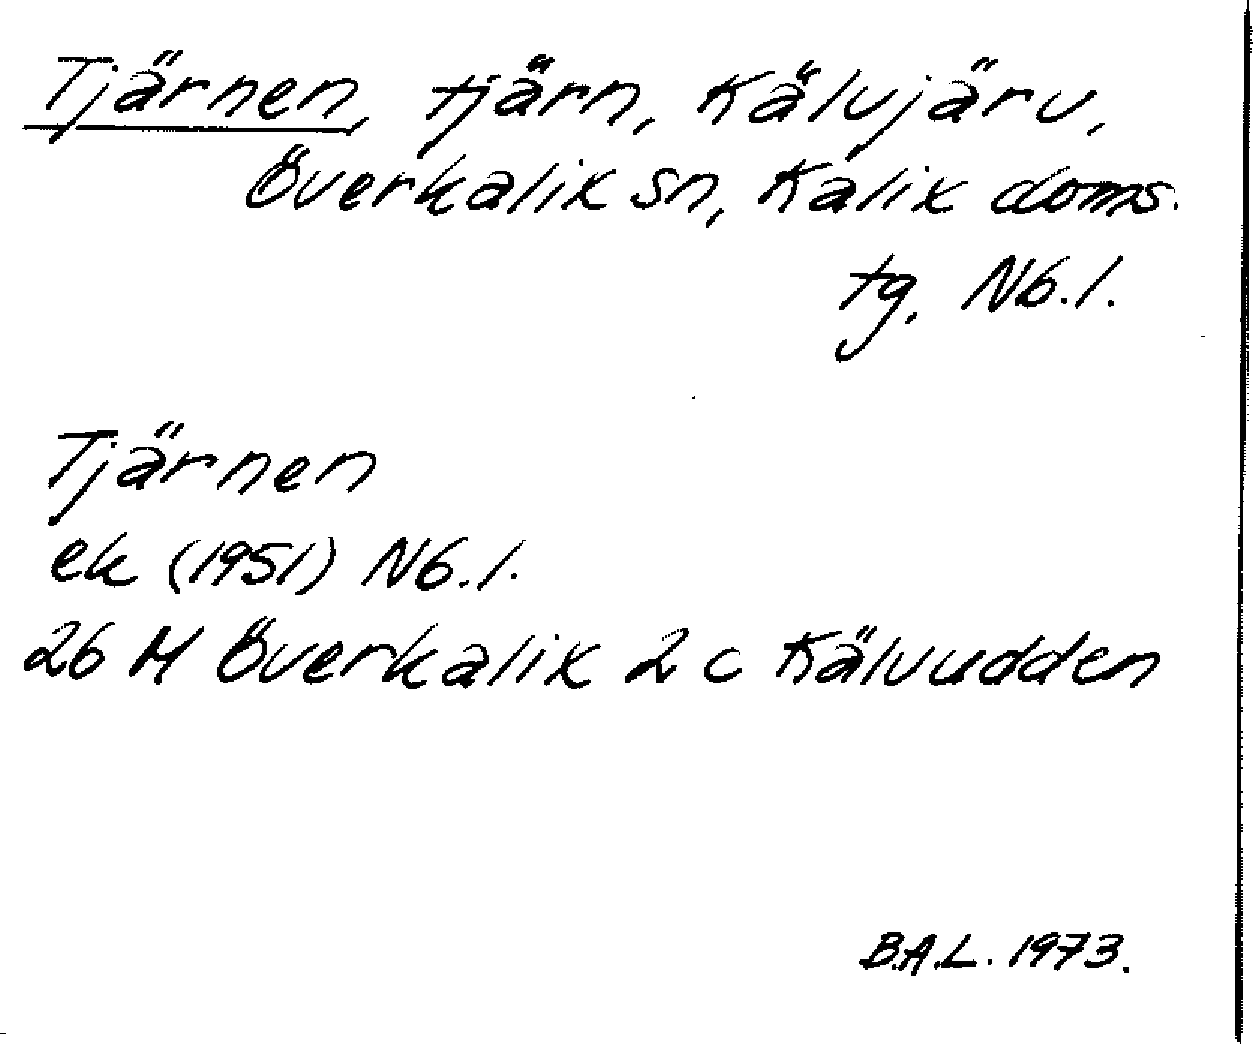 Tjärnen, tjärn, Kälvjärv,
Överkalix sn, Kalix doms.
tg, Nb.l.
Tjärnen
ek (1951) Nb.l.
26 M Överkalix 2 c Kälvudden
B.A.L. 1973.